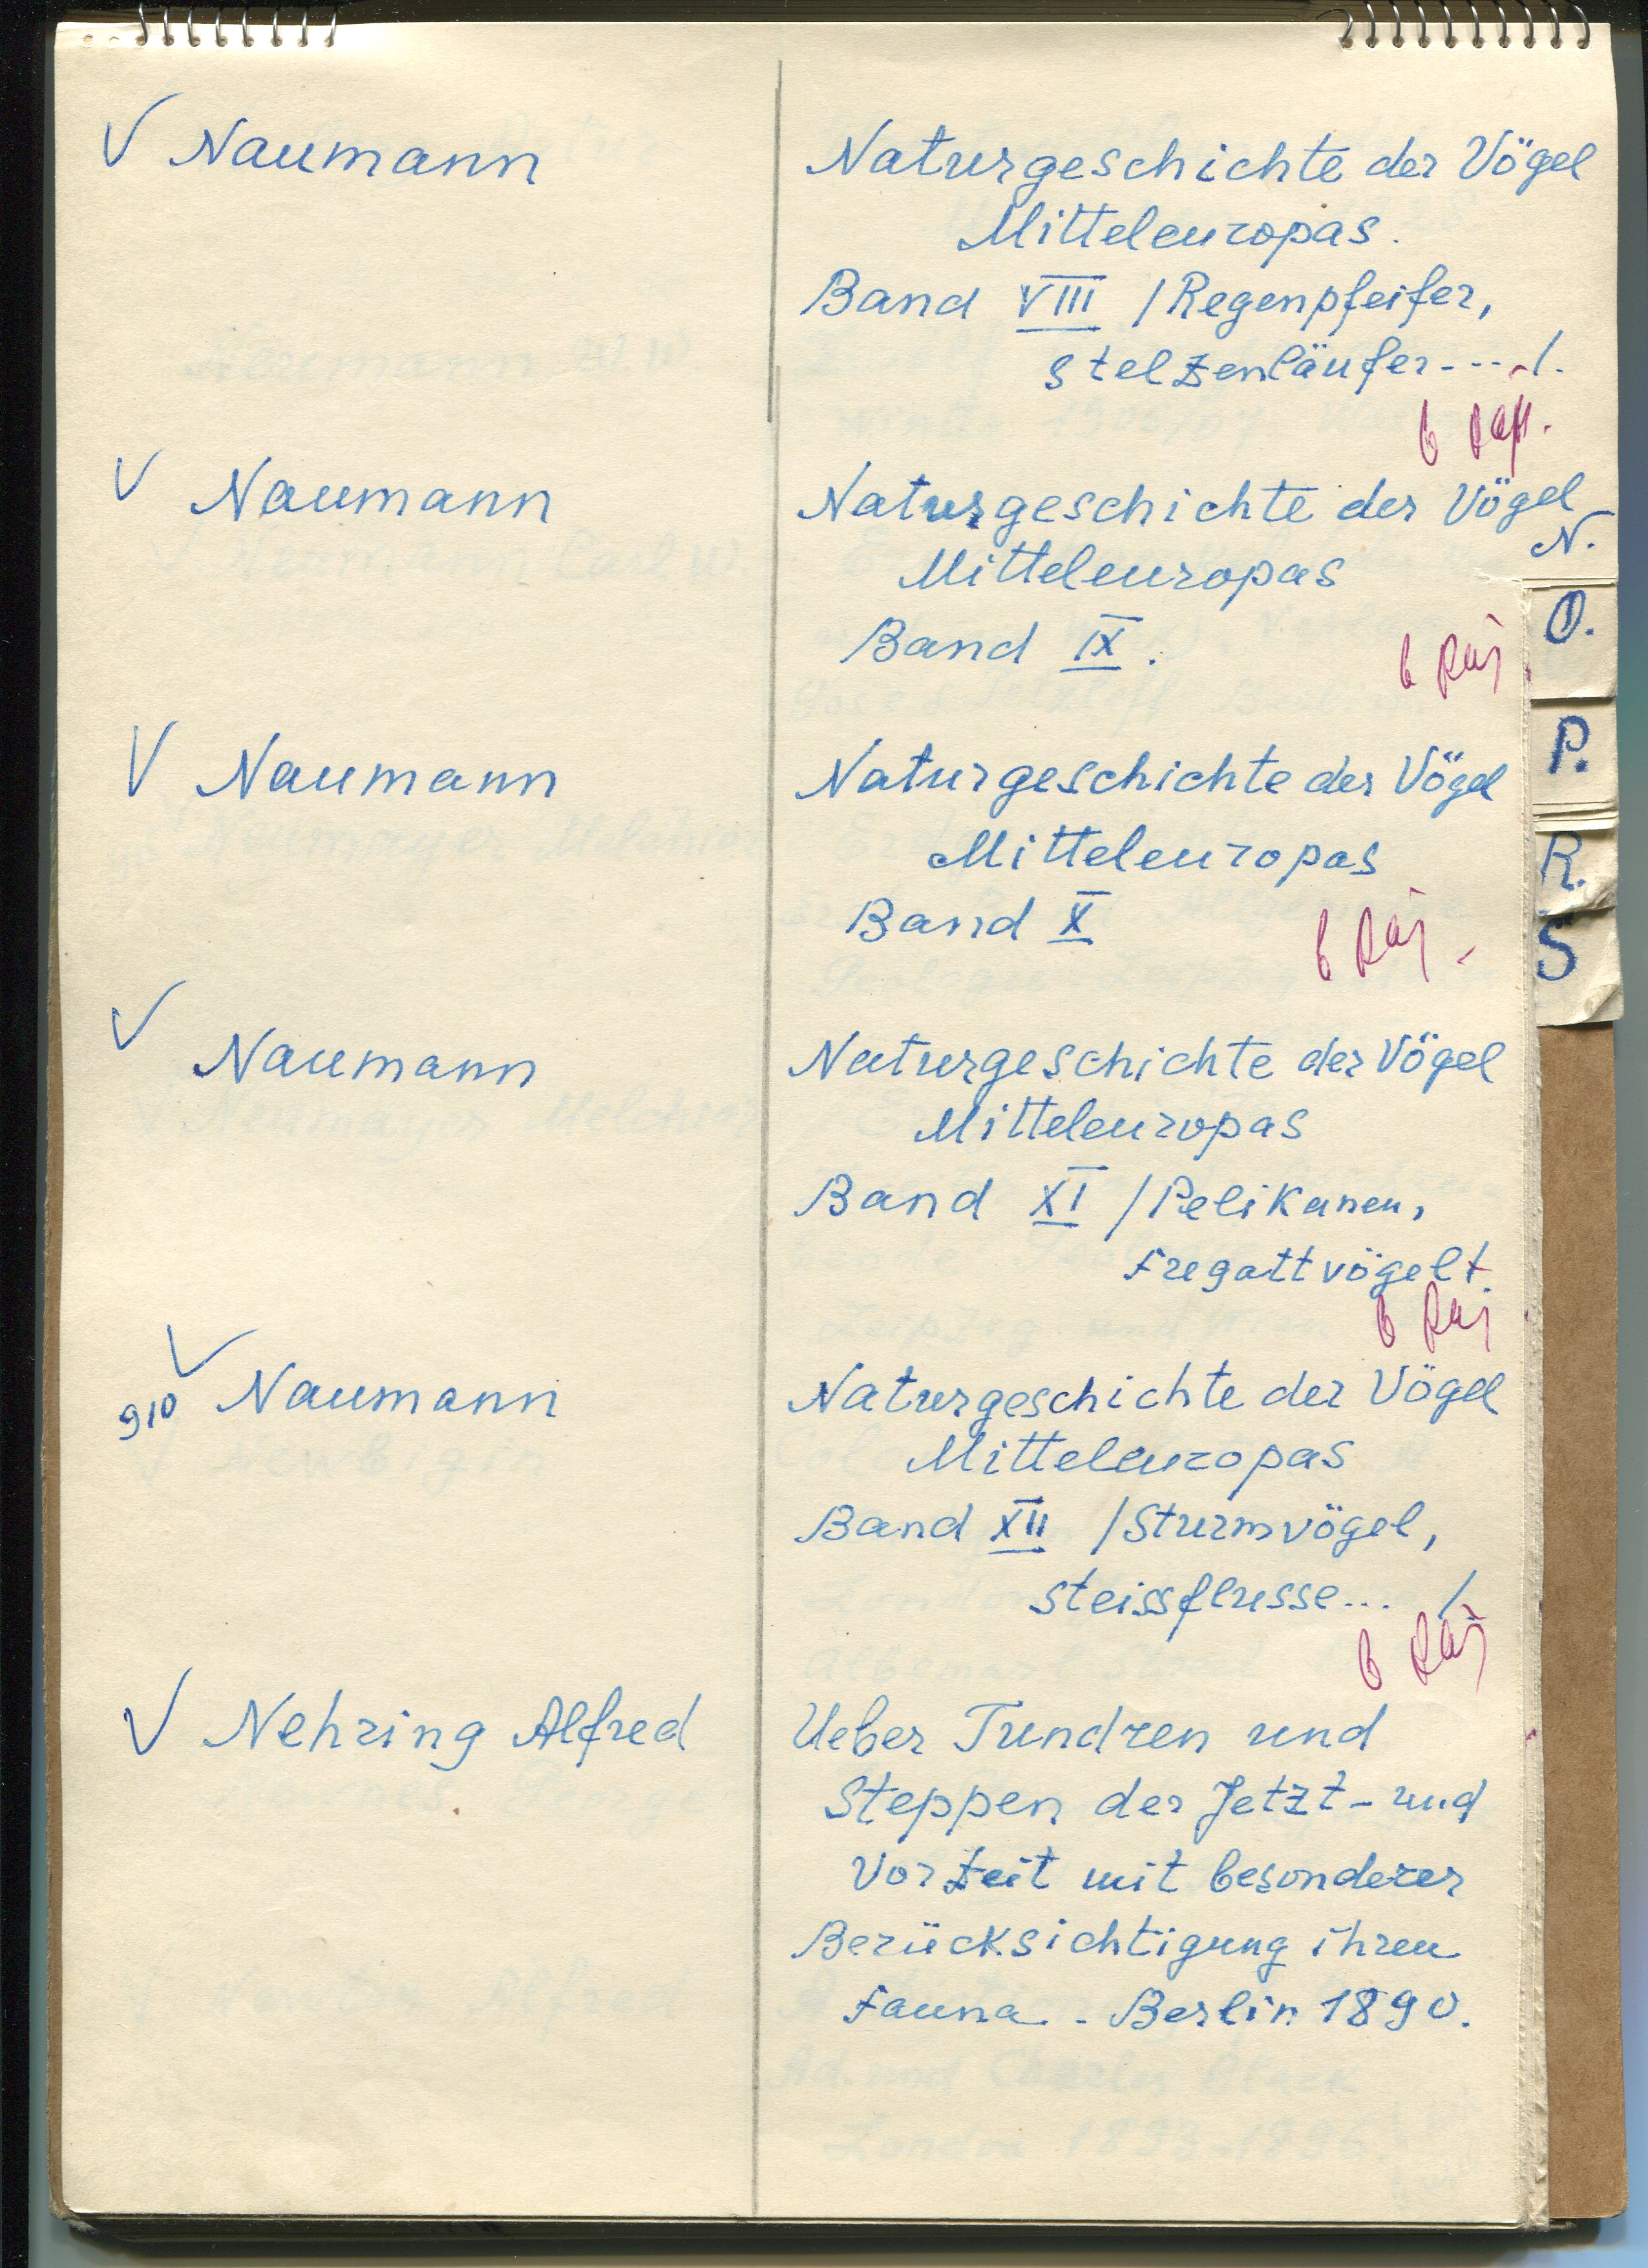 V Naumann
Naturgeschichte der Vögel
Mitteleuropas.
Band VIII /Regenpfeifer,
Stelzenläufer----/.
V Naumann
Naturgeschichte der Vögel
N.
Mitteleuropas
Band IX.
O.
V Naumann
Naturgeschichte der Vögel
P.
Mitteleuropas
R.
Band X
S
V Naumann
Naturgeschichte der Vögel
Mitteleuropas
Band XI /Pelikanen,
Fregattvögel/.
V
910 Naumann
Naturgeschichte der Vögel
Mitteleuropas
Band XII /Sturmvögel,
Steissflusse... /
V Nehring Alfred
Ueber Tundren und
Steppen der Jetzt- und
Vorzeit mit besonderer
Berücksichtigung ihren
Fauna. Berlin 1890.